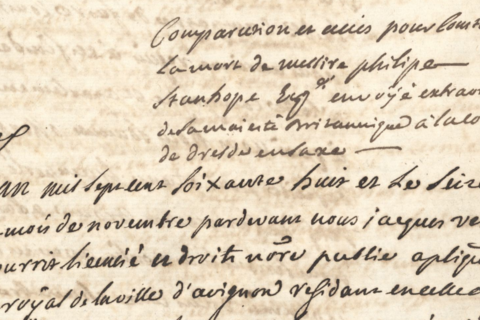 Comparution et actes pour Const
la mort de messire philipe
Stanhope Esqr envoyé extrao
de sa majesté Britannique à la co
de dresde en saxe
an mil sept cent soixante huit et le seiz
mois de novembre pardevant nous jacques ve
licentié ez droits nore public
royal de la ville d'avignon residant en celle